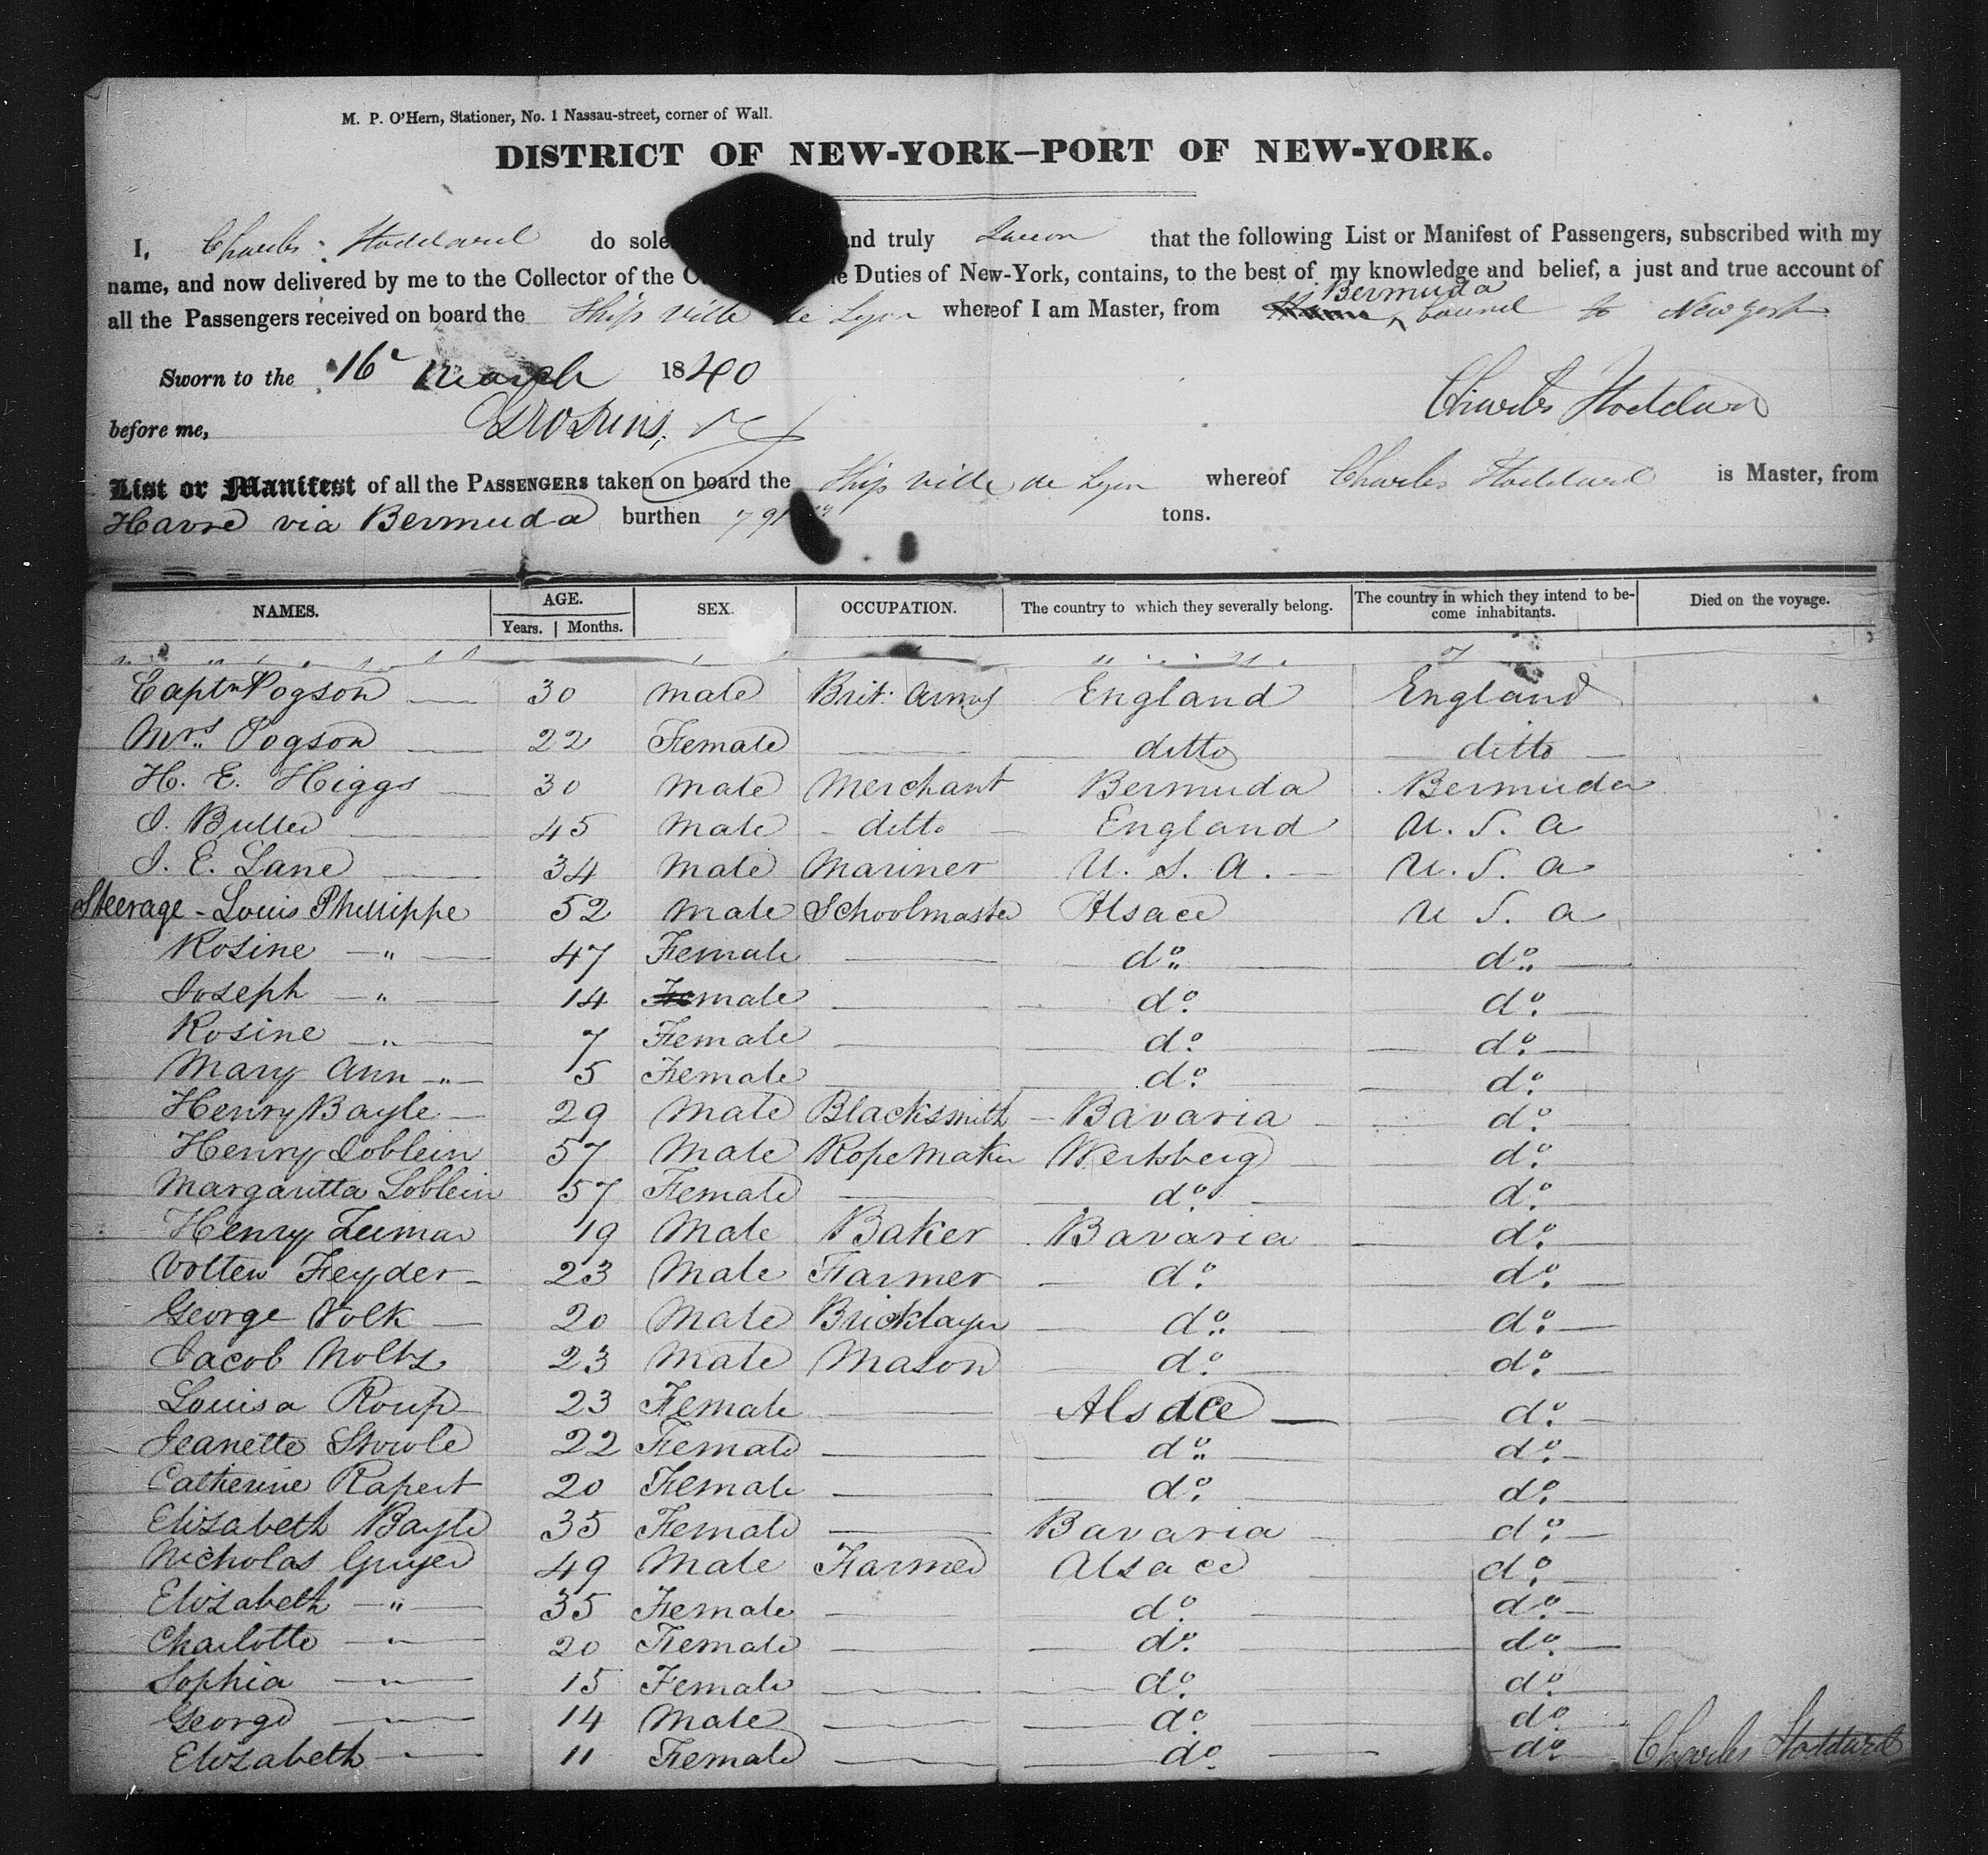 M. P. O'Hern, Stationer, No. 1 Nassau-street, corner of Wall.
DISTRICT OF NEW-YORK—PORT OF NEW-YORK.
I, Charles Stoddard do sole and truly Swear that the following List or Manifest of Passengers, subscribed with my
name, and now delivered by me to the Collector of the C e Duties of New-York, contains, to the best of my knowledge and belief, a just and true account of
all the Passengers received on board the Ship Ville de Lyon whereof I am Master, from Bermuda bound to New York
Sworn to the 16 March 1840
Charles Stoddard
before me,
List or Manifest of all the PASSENGERS taken on board the Ship Ville de Lyon whereof Charles Stoddard is Master, from
Havre via Bermuda burthen 791 tons.
NAMES. AGE. SEX. OCCUPATION. The country to which they severally belong. The country in which they intend to become inhabitants. Died on the voyage.
Years. Months.
Captn Pogson 30 Male Brit. Army England England
Mrs. Pogson 22 Female ditto ditto
H. E. Higgs 30 Male Merchant Bermuda Bermuda
J. Butler 45 Male ditto England U. S. A
J. E. Lane 34 Male Mariner U. S. A. U. S. A
Steerage - Louis Phillippe 52 Male Schoolmaster Alsace U S. A
Rosine " 47 Female do. do.
Joseph " 14 male do. do.
Rosine " 7 Female do. do.
Mary Ann " 5 Female do. do.
Henry Bayle 29 Male Blacksmith Bavaria do.
Henry Loblein 57 Male Ropemaker Wertsberg do.
Margaritta Loblein 57 Female do. do.
Henry Zeimar 19 Male Baker Bavaria do.
Volten Feyder 23 Male Farmer do. do.
George Volk 20 Male Bricklayer do. do.
Jacob Nolts 23 Male Mason do. do.
Louisa Roup 23 Female Alsace do.
Jeanette 22 Female do. do.
Catherine Rapert 20 Female do. do.
Elizabeth Bayle 35 Female Bavaria do.
Nicholas Guyer 49 Male Farmer Alsace do.
Elizabeth " 35 Female do. do.
Charlotte " 20 Female do. do.
Sophia " 15 Female do. do.
George " 14 Male do. do.
Elizabeth " 11 Female do. do. Charles Stoddard